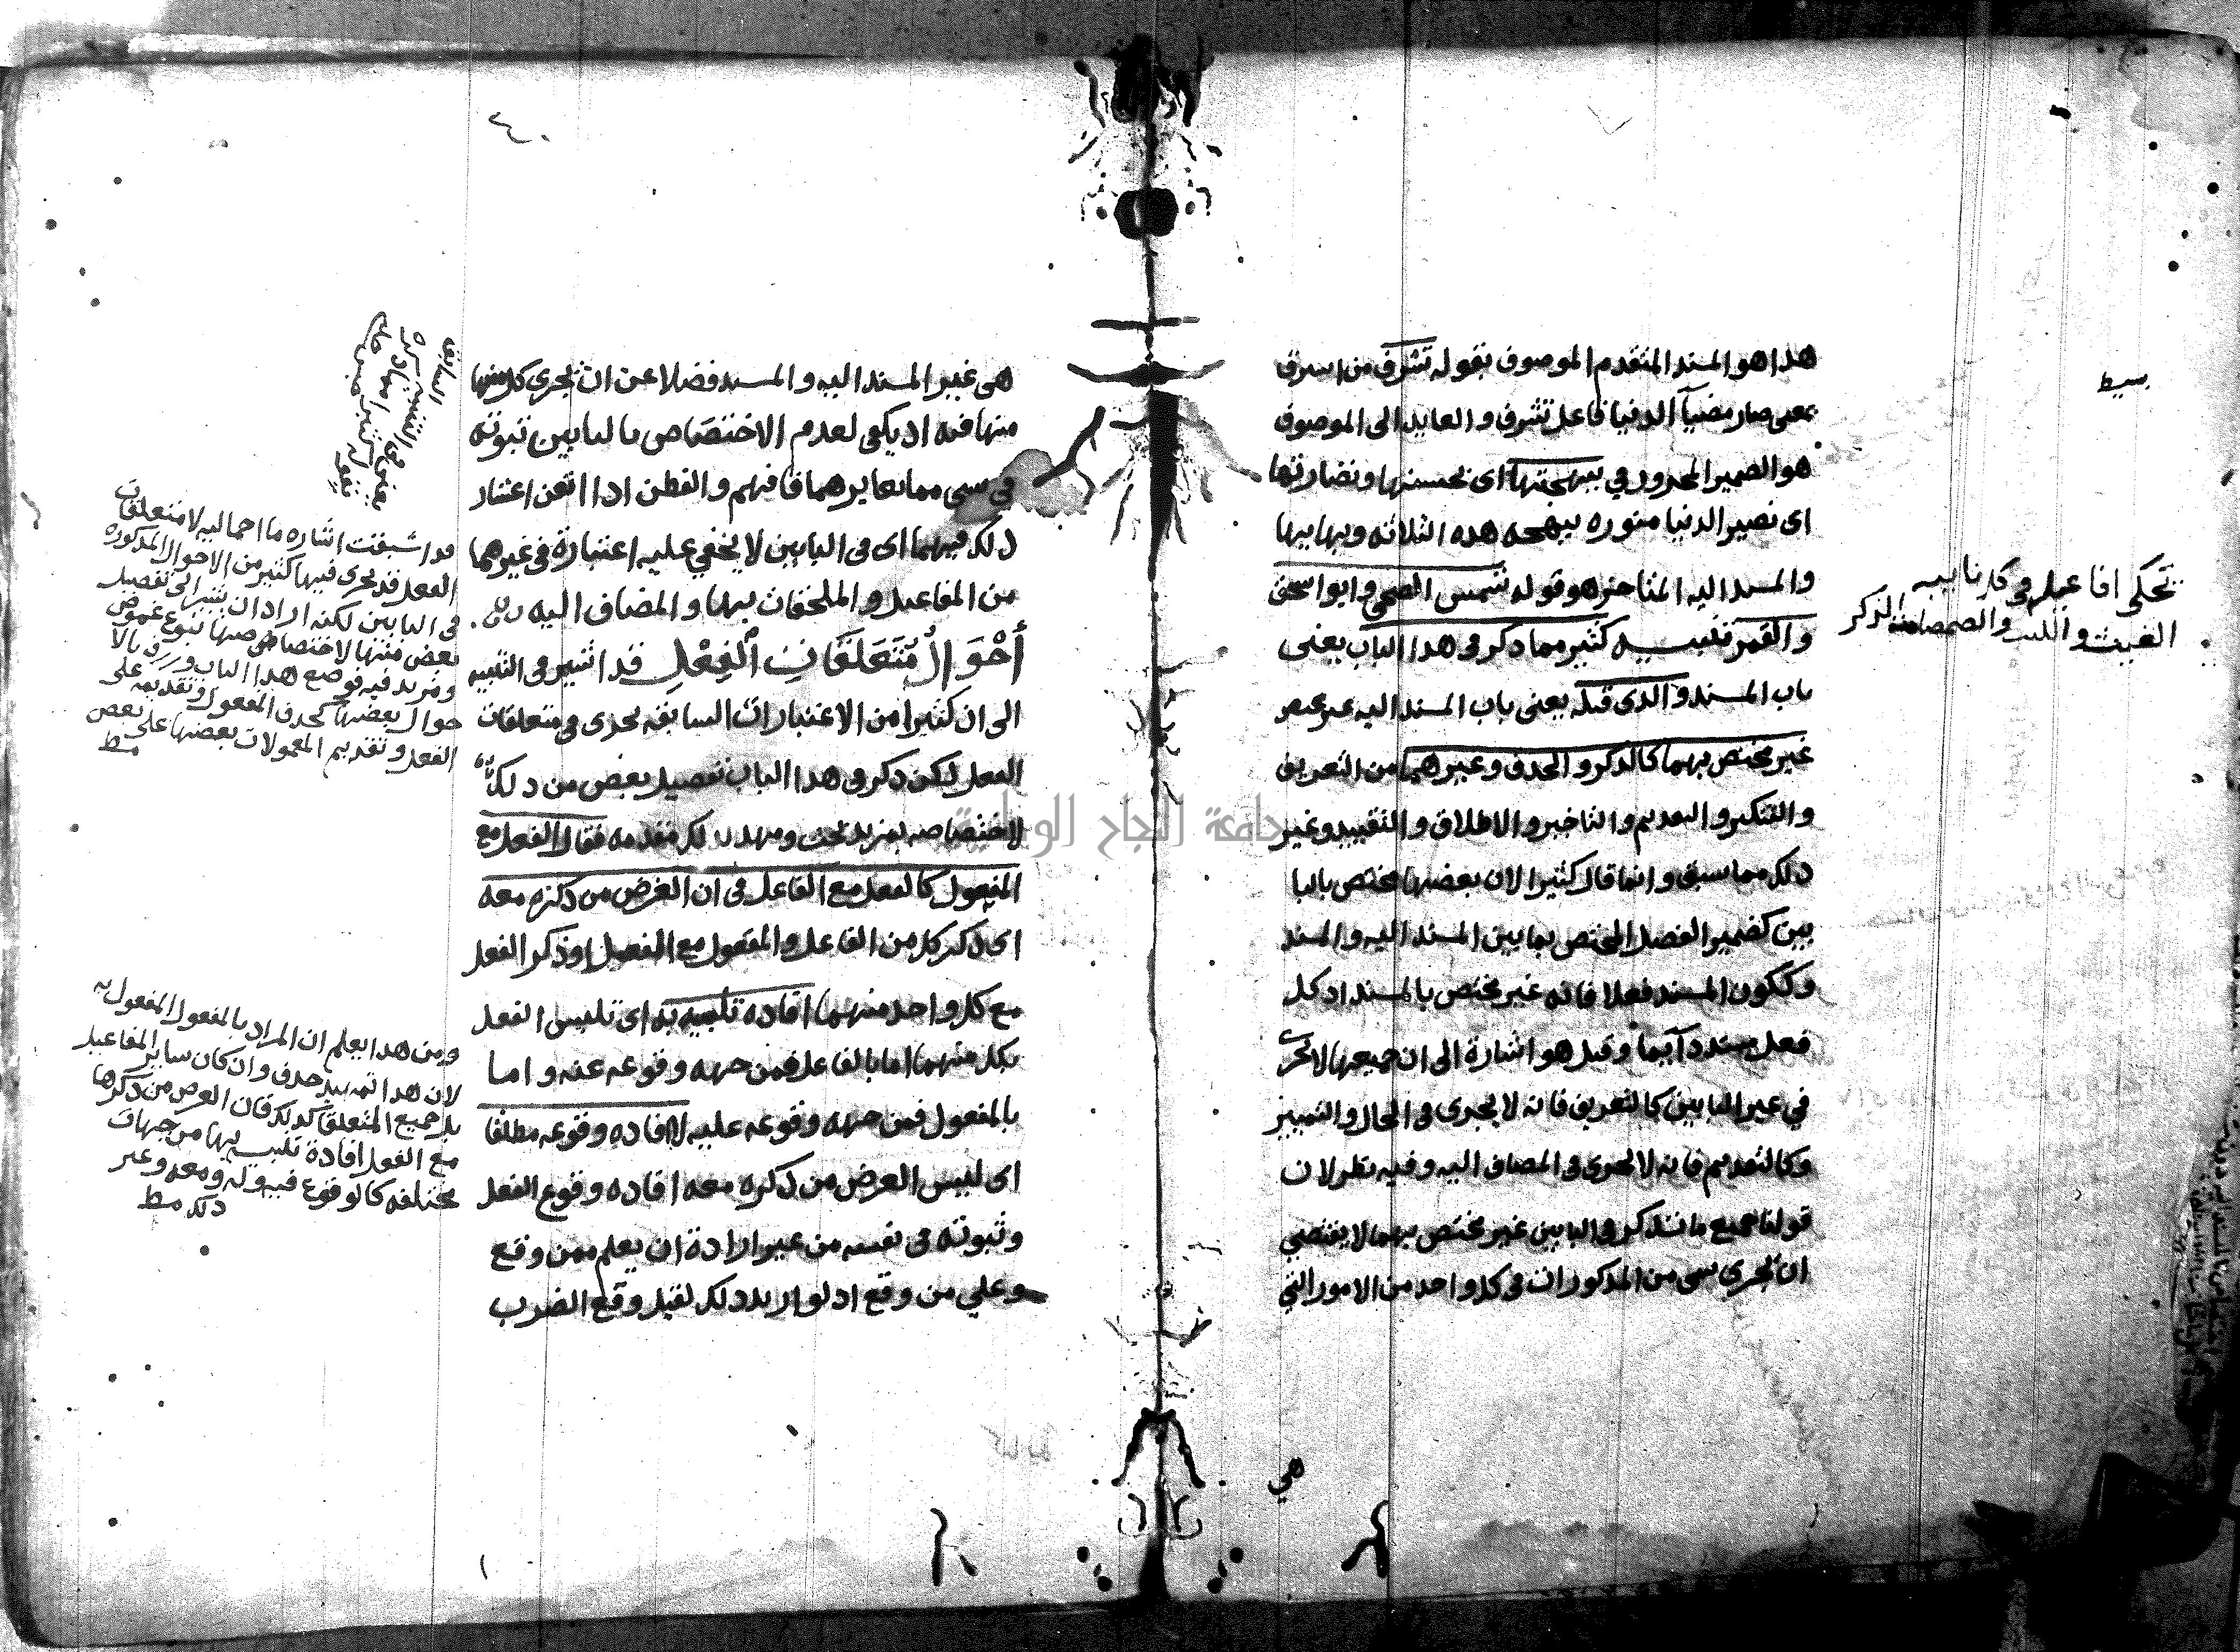 هذا هو المسند المتقدم الموصوف بقوله تشرق من اشرق
بمعنى صار مضيآ الدنيا فاعل تشرق والعايد الى الموصوف
هو الضمير المجرور في ببهجتها اى بحسنها ونضارتها
اى تصير الدنيا منوره ببهجه هذه الثلاثه وبهايها
والمسند اليه المتاخر هو قوله شمس الضحى وابو اسحق
والقمر تنبيـــه كثير مما ذكر فى هذا الباب يعنى
باب المسند والذى قبله يعنى باب المسند اليه
غير مختص بهما كالذكر والحذف وغيرهما من التعريف
والتنكير والتقديم والتاخير والاطلاق والتقييد وغير
ذلك مما سبق وانما قال كثير الان بعضها مختص بالبا
بين كضمير الفصل المختص بما بين المسند اليه والمسند
وككون المسند فعلا فانه غير مختص بالمسند اذ كل
فعل مسند دآيما وقيل هو اشارة الى ان جميعها لا تجرى
في غير البابين كالتعريف فانه لا يجرى فى الحال والتمييز
وكالتقديم فانه لا يجرى فى المضاف اليه وفيه نظر لان
قولنا جميع ما نذكر فى البابين غير مختص بهما لا يقتضي
ان تجرى شى من المذكورات فى كل واحد من الامور التي
هي
بسيط
تحكى افاعيله فى كل نايبه
الغيث والليث والصمصامه الذكر
٤٠
هى غير المسند اليه والمسند فضلا عن ان تجرى كل منها
منها فيه اذ يكفى لعدم الاختصاص بالبابين ثبوته
فى شى مما يغايرهما فافهم والفطن اذا اتقن اعتبار
ذلك فيهما اى فى البابين لا يخفي عليه اعتباره فى غيرهما
من المفاعيل والملحقات بها والمضاف اليه
أحوال متعلقات الفعل قد اشير فى التنبيه
الى ان كثيرا من الاعتبارات السابقه يجرى فى متعلقات
الفعل لكن ذكر فى هذا الباب تفصيل بعض من ذلك
لاختصاصه بمزيد بحث ومهد لذلك مقدمه فقال الفعل مع
المفعول كالفعل مع الفاعل فى ان الغرض من ذكره معه
اى ذكر كل من الفاعل والمفعول مع الفعل او ذكر الفعل
مع كل واحد منهما افاده تلبسه به اى تلبس الفعل
بكل منهما اما بالفاعل فمن جهه وقوعه عنه واما
بالمفعول فمن جهه وقوعه عليه لا افاده وقوعه مطلقا
اى ليس الغرض من ذكره معه افاده وقوع الفعل
وثبوته فى نفسه من غير ارادة ان يعلم ممن وقع
وعلي من وقع اذ لو اريد ذلك لقيل وقع الضرب
قد اشبقت اشاره ما اجماليه لا متعلقات
الفعل قد يجرى فيها كثير من الاحوال المذكوره
فى البابين لكنه اراد ان يشير الى تفصيل
بعض منها لاختصاصها بنوع غموض
ومزيد فيه فوضع هذا الباب
حوال بعضها كحذف المفعول وتقديمه على
الفعل وتقديم المعمولات بعضها على بعض
مط
ومن هذا يعلم ان المراد بالمفعول المفعول به
لان هذا تمهيد حذف وان كان ساير المفاعيل
بل جميع المتعلقا كذلك فان الغرض من ذكرها
مع الفعل افادة تلبسه بها من جهات
مختلفه كالوقوع فيه وله ومعه وغير
ذلك مط
جامعة النجاح الوطنية